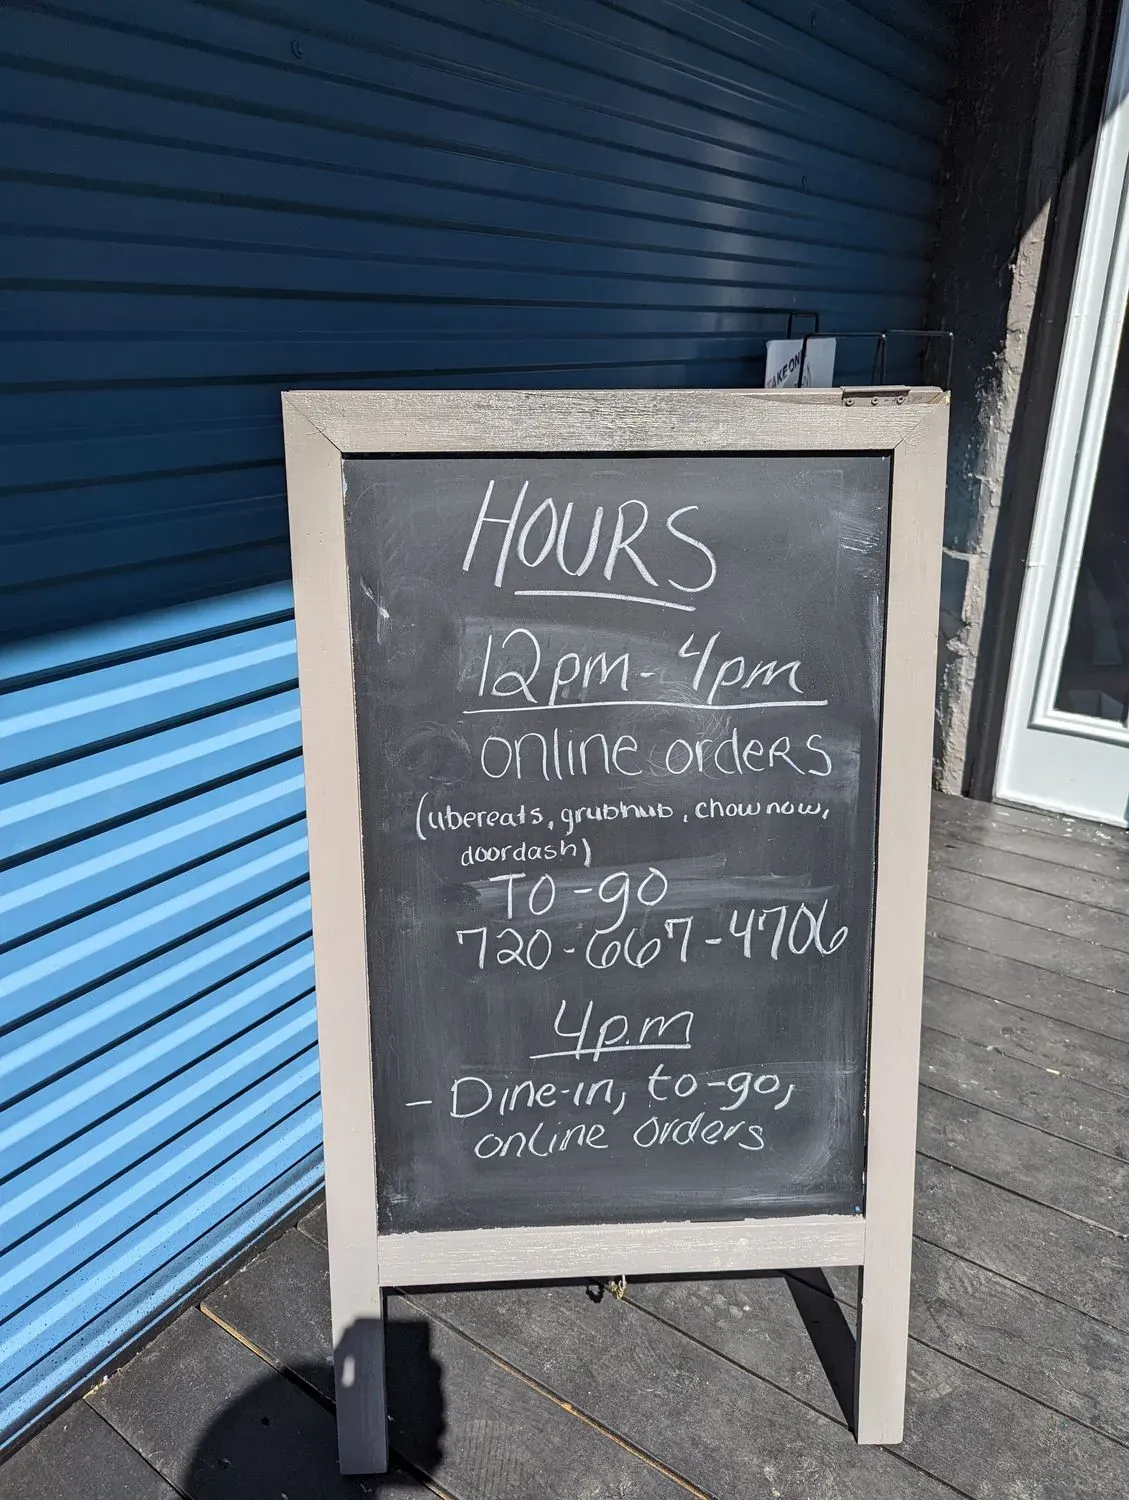 TAKE ON
HOURS
12pm - 4pm
online orders
(ubereats, grubhub, chownow,
doordash)
TO-go
720-667-4706
4p.m
- Dine-in, to-go,
online orders